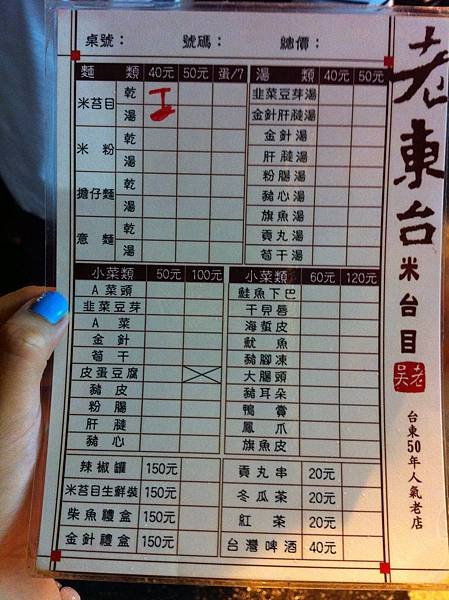 桌號： 號碼： 總價：
麵 類 40元 50元 蛋/7
米苔目 乾
湯
米 粉 乾
湯
擔仔麵 乾
湯
意 麵 乾
湯
湯 類 40元 50元
韭菜豆芽湯
金針肝膧湯
金針湯
肝膧湯
粉腸湯
豬心湯
旗魚湯
貢丸湯
筍干湯
小菜類 50元 100元
A菜頭
韭菜豆芽
A 菜
金 針
筍 干
皮蛋豆腐
豬 皮
粉 腸
肝 膧
豬 心
小菜類 60元 120元
鮭魚下巴
干貝唇
海蜇皮
魷 魚
豬腳凍
大腸頭
豬耳朵
鴨 賞
鳳 爪
旗魚皮
辣椒罐 150元
米苔目生鮮裝 150元
柴魚禮盒 150元
金針禮盒 150元
貢丸串 20元
冬瓜茶 20元
紅 茶 20元
台灣啤酒 40元
老東台
米台目
老吳
台東50年人氣老店